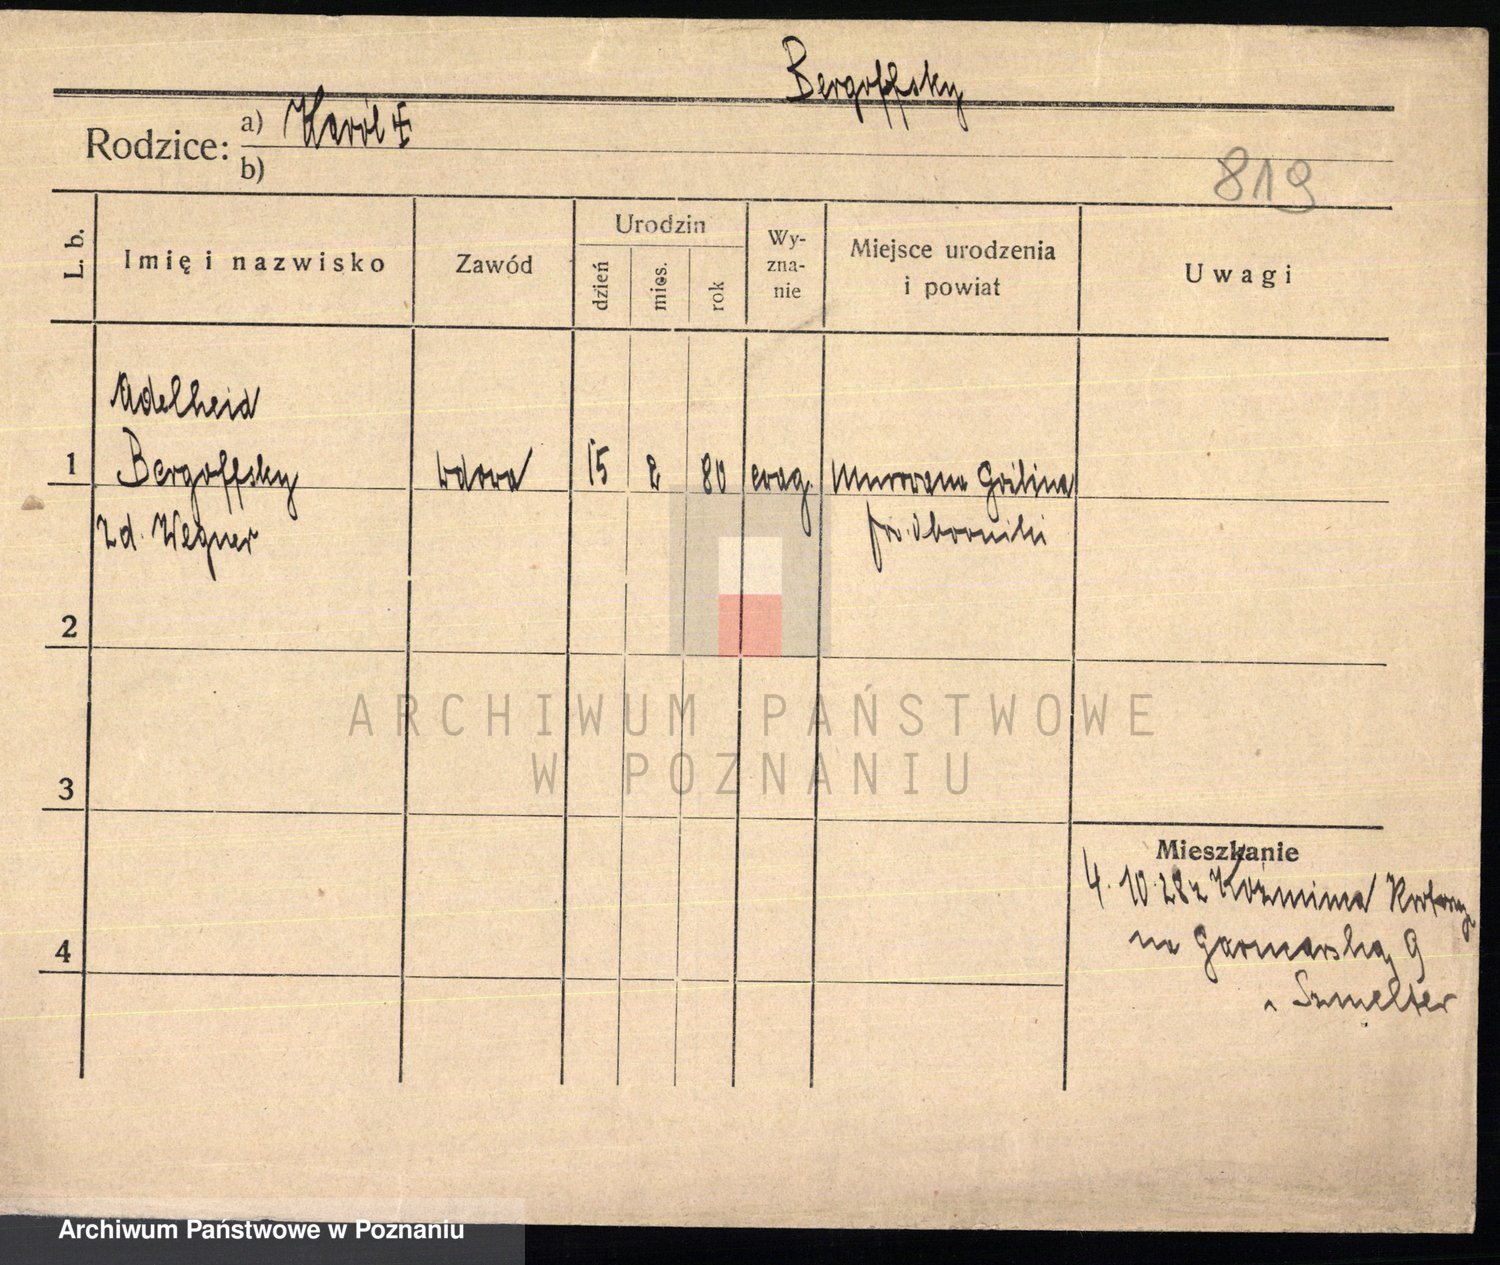 Bergoffsky
Rodzice: a) Karól
b)
819
L. b.
Imię i nazwisko
Zawód
Urodzin
dzień
mies.
rok
Wy-
zna-
nie
Miejsce urodzenia
i powiat
Uwagi
Adelheid
1 Bergoffsky wdowa 15 2 80 ewag. Murowana Goślina
zd. Wegner pow. Oborniki
2
3
4
Mieszkanie
4.10.28 z Koźmina
na Garncarską 9
Szmelter
ARCHIWUM PAŃSTWOWE
W POZNANIU
Archiwum Państwowe w Poznaniu